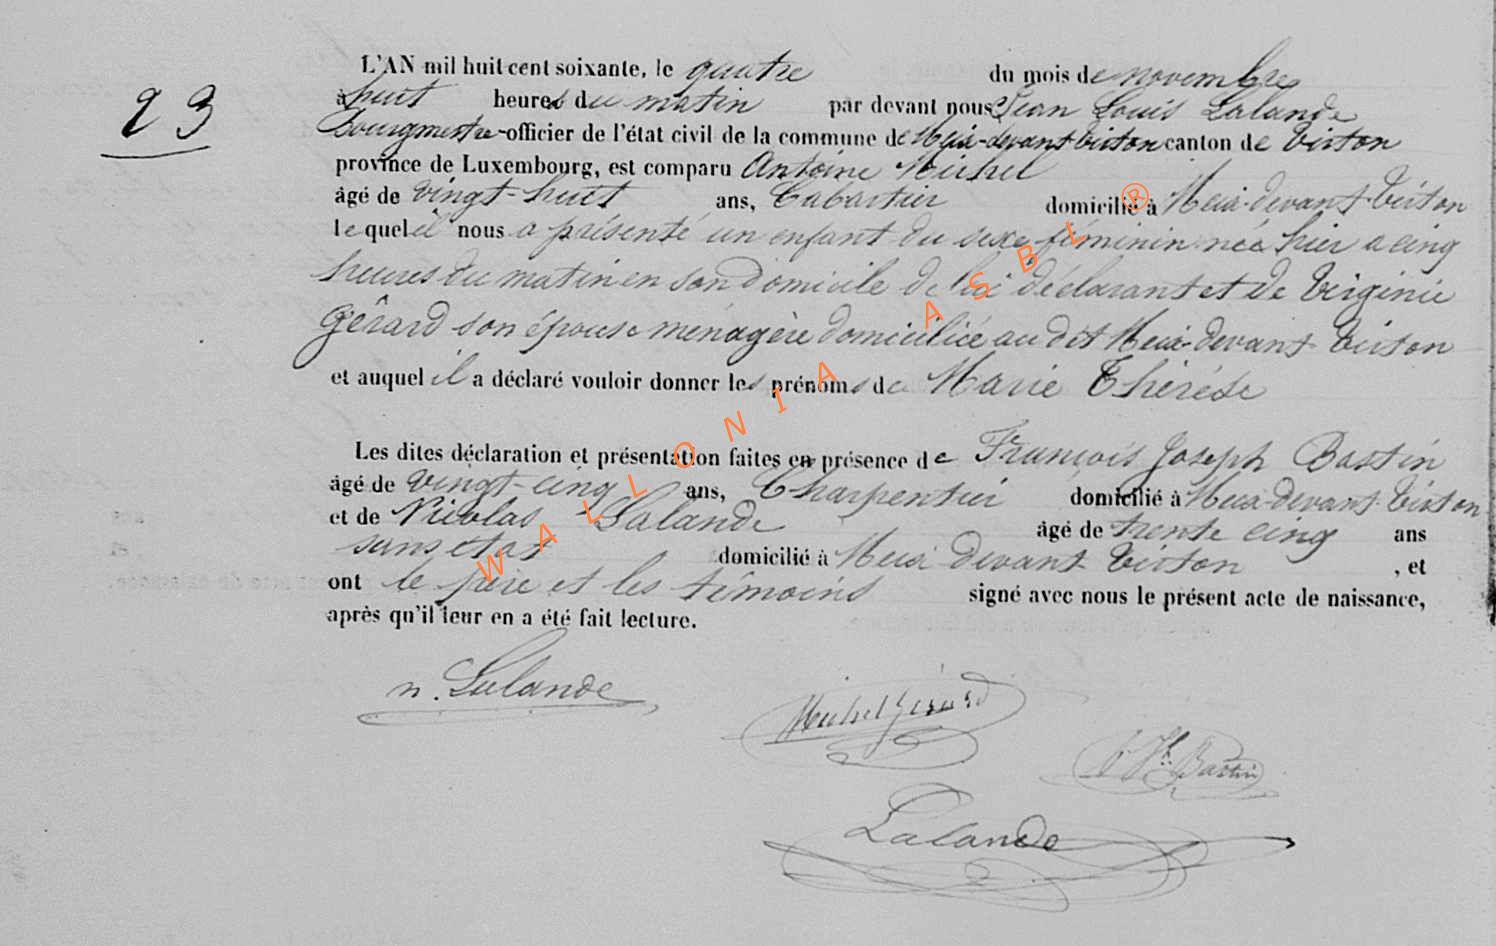 23
L'AN mil huit cent soixante, le quatre du mois de novembre
à huit heures du matin par devant nous Jean Louis Lalande
Bourgmestre officier de l'état civil de la commune de Meix-devant-Virton canton de Virton
province de Luxembourg, est comparu Antoine Michel
âgé de vingt-huit ans, Cabartier domicilié à Meix-devant-Virton
lequel il nous a présenté un enfant du sexe féminin née hier a cinq
heures du matin en son domicile de lui déclarant et de Virginie
Gérard son épouse ménagère domiciliée au dit Meix-devant-Virton
et auquel il a déclaré vouloir donner les prénoms de Marie Thérése
Les dites déclaration et présentation faites en présence de François Joseph Bastin
âgé de vingt-cinq ans, Charpentier domicilié à Meix-devant-Virton
et de Nicolas Lalande âgé de trente cinq ans
sans etat domicilié à Meix devant Virton , et
ont le père et les témoins signé avec nous le présent acte de naissance,
après qu'il leur en a été fait lecture.
n. Lalande
Michel Gérard
Bastin
Lalande
WALLONIA ASBL ®